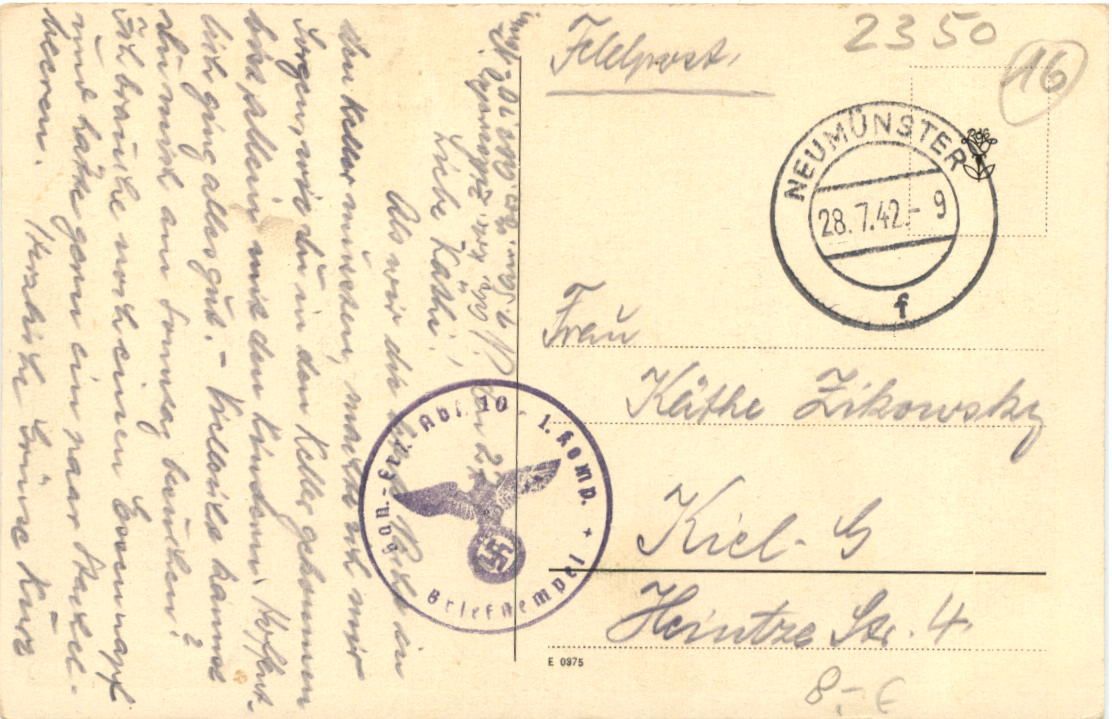 Feldpost.
2350
16
NEUMÜNSTER
28.7.42.- 9
f
Frau
Käthe Zikowsky
Kiel-G
Heintze Str. 4.
8,- €
E 0375
Abt. 10 - 1. Komp.
Briefstempel
Liebe Käthe!
Als wir die in
den Keller müssten, machte ich mir
Sorgen, wie du in den Keller gekommen
bist, allein mit den Kindern. Hoffent-
lich ging alles gut. - Vielleicht kannst
du mich am Sonntag besuchen?
Ich brauche noch einen Essennapf
und hätte gern ein paar Stachel-
beeren. Herzliche Grüsse